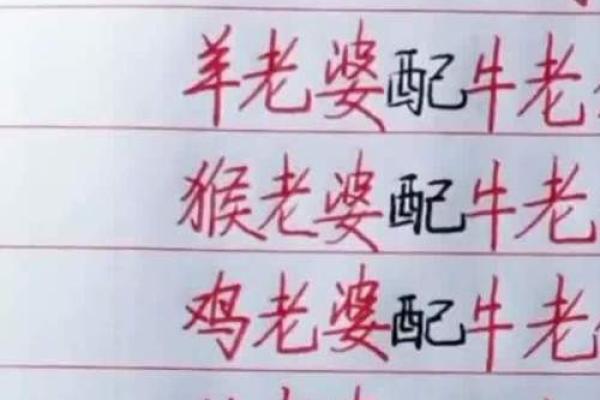 羊老婆配牛老
猴老婆配牛老
鸡老婆配牛老